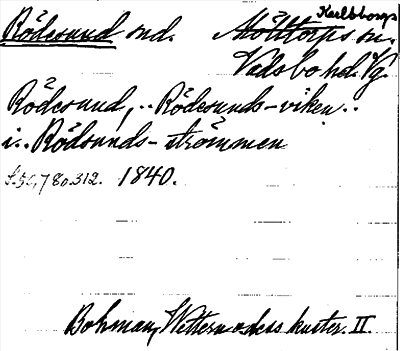 Rödesund snd. Mölltorps sn.
Karlsborgs
Vadsbo hd. Vg.
Rödesund, .. Rödesunds-viken ..
i .. Rödsunds-strömmen
S. 50, 780. 312. 1840.
Bohman, Wettern o dess kuster. II.